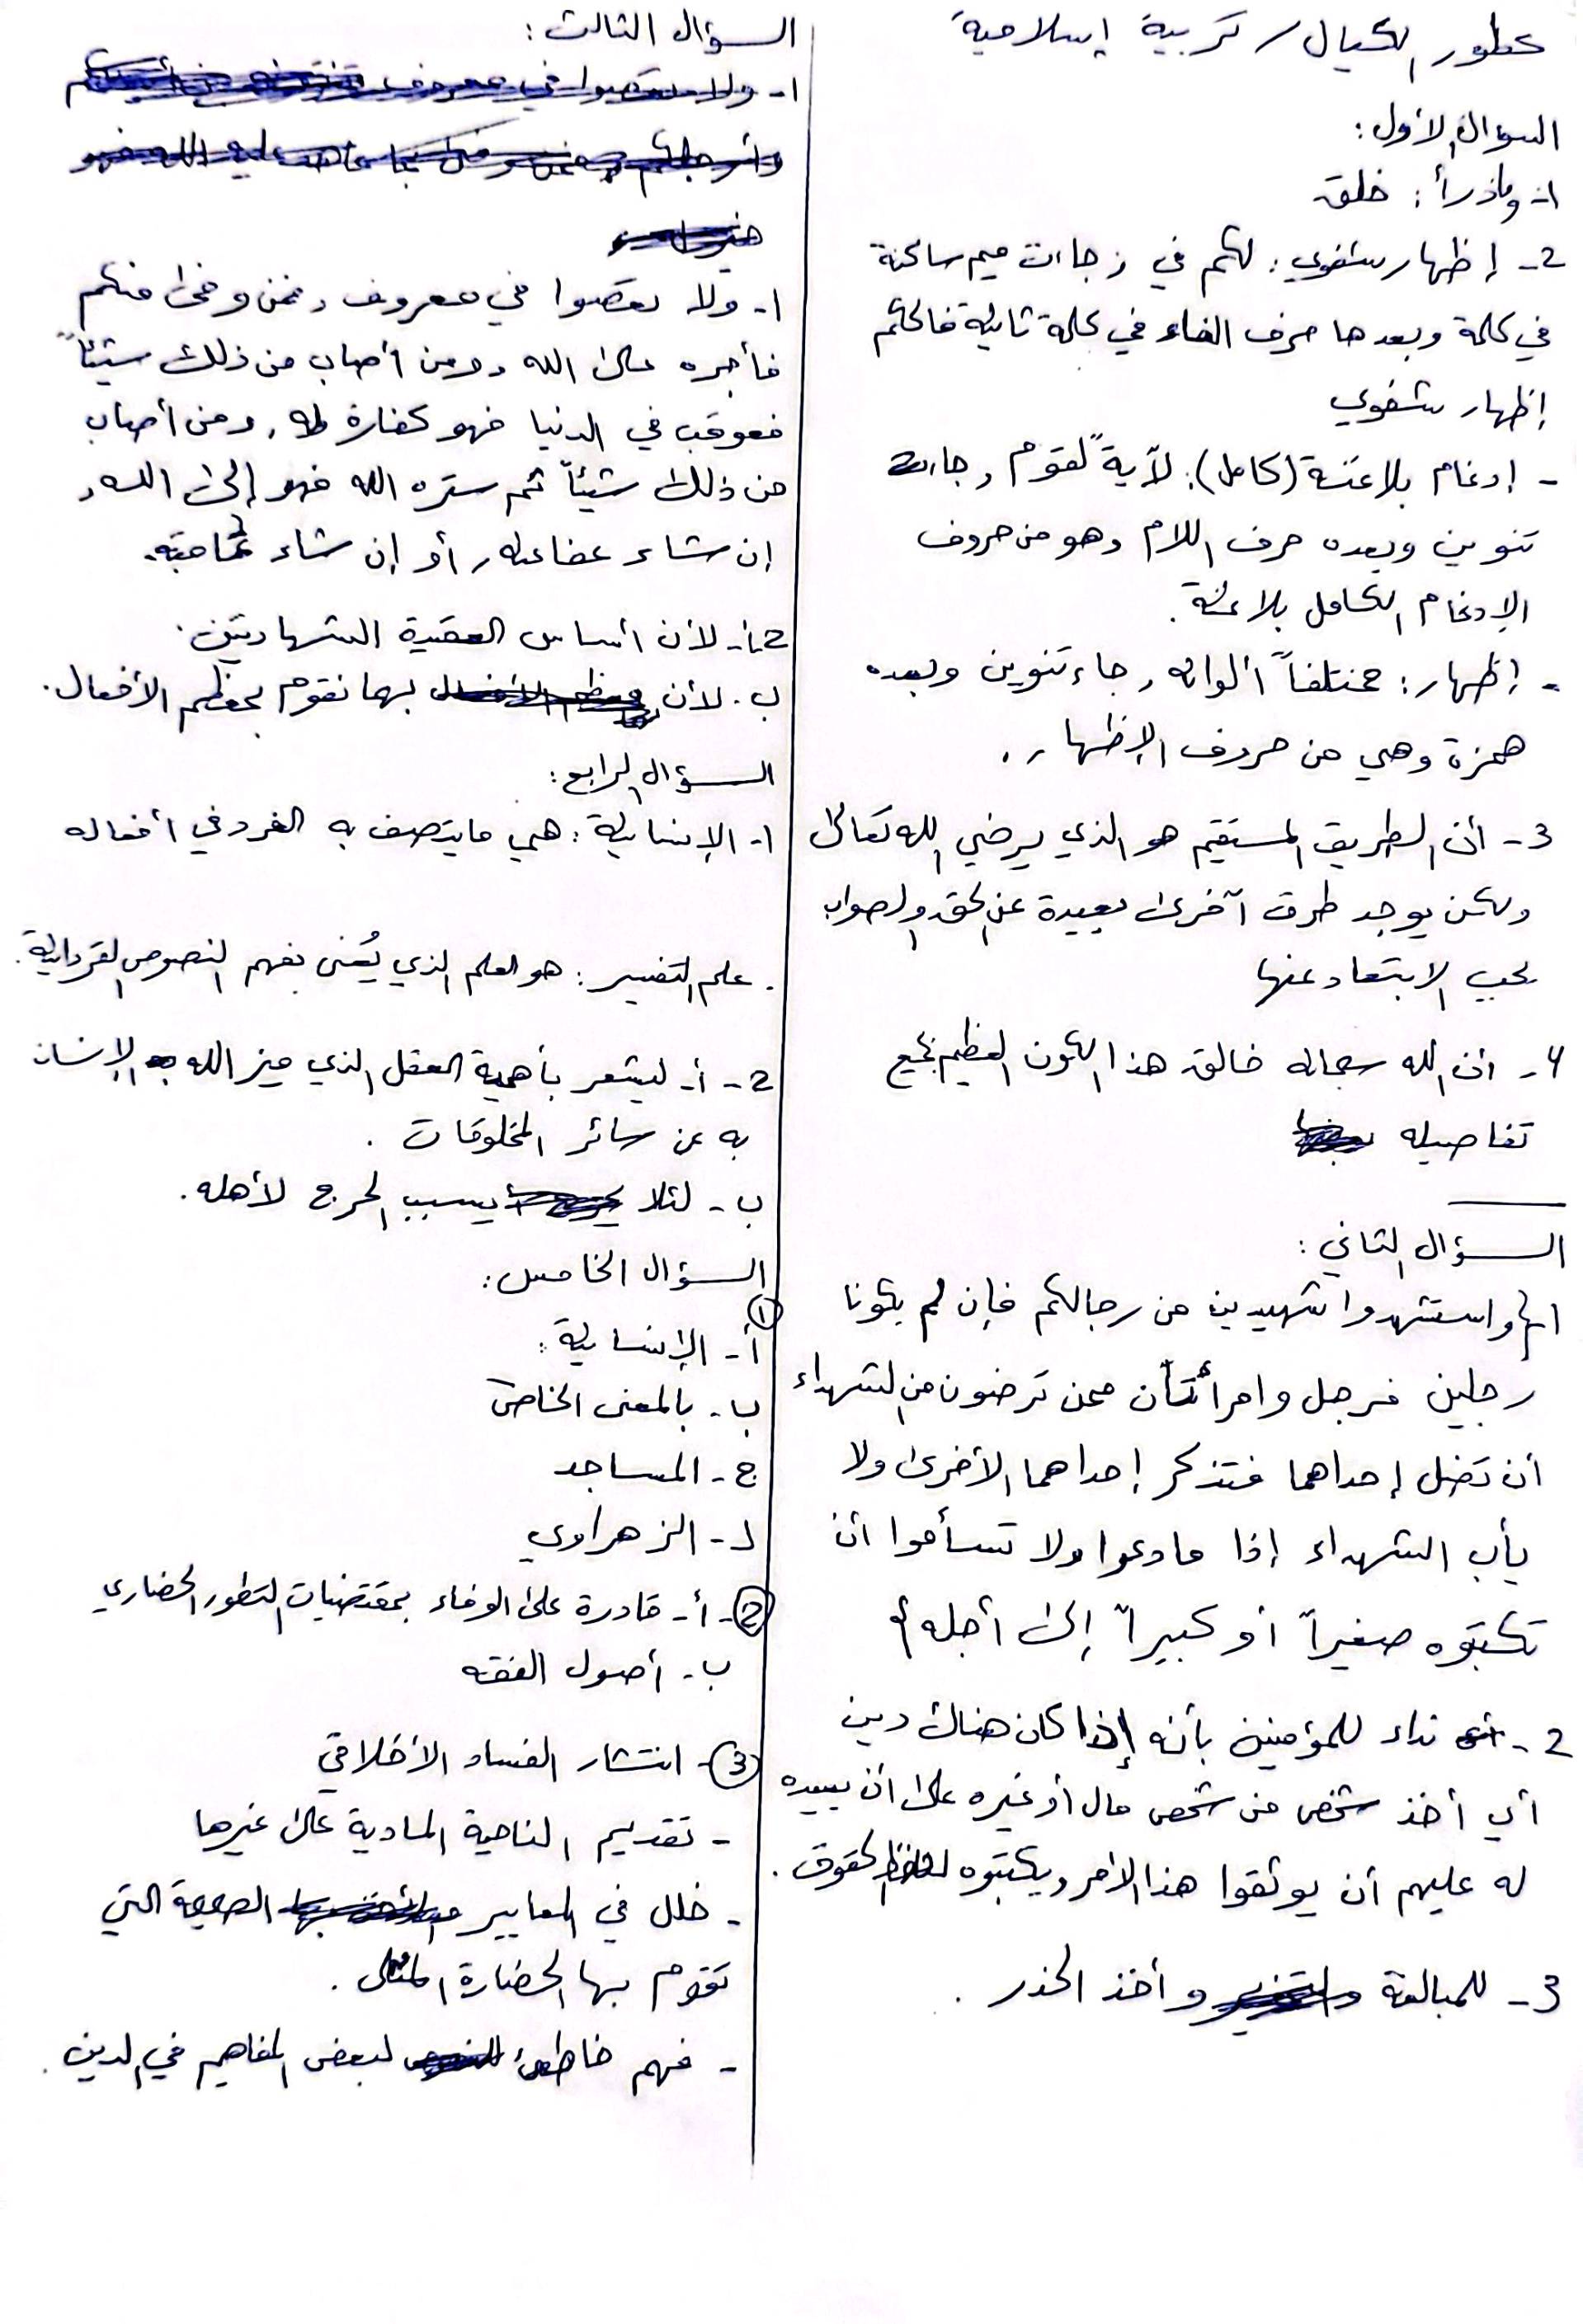 عطور الكيال / تربية إسلامية
السؤال الأول:
1- وماذرأ: خلق
2- إظهار شفوي: لكم في , جاءت ميم ساكنة
في كلمة وبعدها حرف الفاء في كلمة ثانية فالحكم
إظهار شفوي
- إدغام بلاغنة (كامل): لآيةً لقوم , جاءت
تنوين وبعده حرف اللام وهو من حروف
الإدغام الكامل بلاغنة.
- إظهار: مختلفاً ألوانه , جاء تنوين وبعده
همزة وهي من حروف الإظهار.
3- أن الطريق المستقيم هو الذي يرضي الله تعالى
ولكن يوجد طرق آخرى بعيدة عن الحق والصواب
يجب الابتعاد عنها
4- أن الله سبحانه خالق هذا الكون العظيم بجميع
تفاصيله
السؤال الثاني:
1- واستشهدوا شهيدين من رجالكم فإن لم يكونا
رجلين فرجل وامرأتان ممن ترضون من الشهداء
أن تضل إحداهما فتذكر إحداهما الأخرى ولا
يأب الشهداء إذا مادعوا ولا تسأموا أن
تكتبوه صغيراً أو كبيراً إلى أجله
2- نداء للمؤمنين بأنه إذا كان هناك دين
أي أخذ شخص من شخص مال أو غيره على أن يعيده
له عليهم أن يوثقوا هذا الأمر ويكتبوه لحفظ الحقوق.
3- للمبالغة وأخذ الحذر.
السؤال الثالث:
1- ولا تعصوا في معروف , فمن وفى منكم
فأجره على الله , ومن أصاب من ذلك شيئاً
فعوقب في الدنيا فهو كفارة له , ومن أصاب
من ذلك شيئاً ثم ستره الله فهو إلى الله,
إن شاء عفا عنه , أو إن شاء عاقبه.
2- أ- لأن أساس العقيدة الشهادتين.
ب. لأن بهما نقوم بمعظم الأفعال.
السؤال الرابع:
1- الإنسانية: هي مايتصف به الفرد في أفعاله
. علم التفسير: هو العلم الذي يُعنى بفهم النصوص القرءانية.
2- أ- ليشعر بأهمية العقل الذي ميز الله الإنسان
به عن سائر المخلوقات.
ب- لئلا يسبب الحرج لأهله.
السؤال الخامس:
① أ- الإنسانية:
ب- بالمعنى الخاص
ج- المساجد
د- الزهراوي
② - أ- قادرة على الوفاء بمقتضيات التطور الحضاري
ب- أصول الفقه
③ - انتشار الفساد الأخلاقي
- تقديم الناحية المادية على غيرها
- خلل في المعايير الصحيحة التي
تقوم بها الحضارة المثلى.
- فهم خاطئ لبعض المفاهيم في الدين.